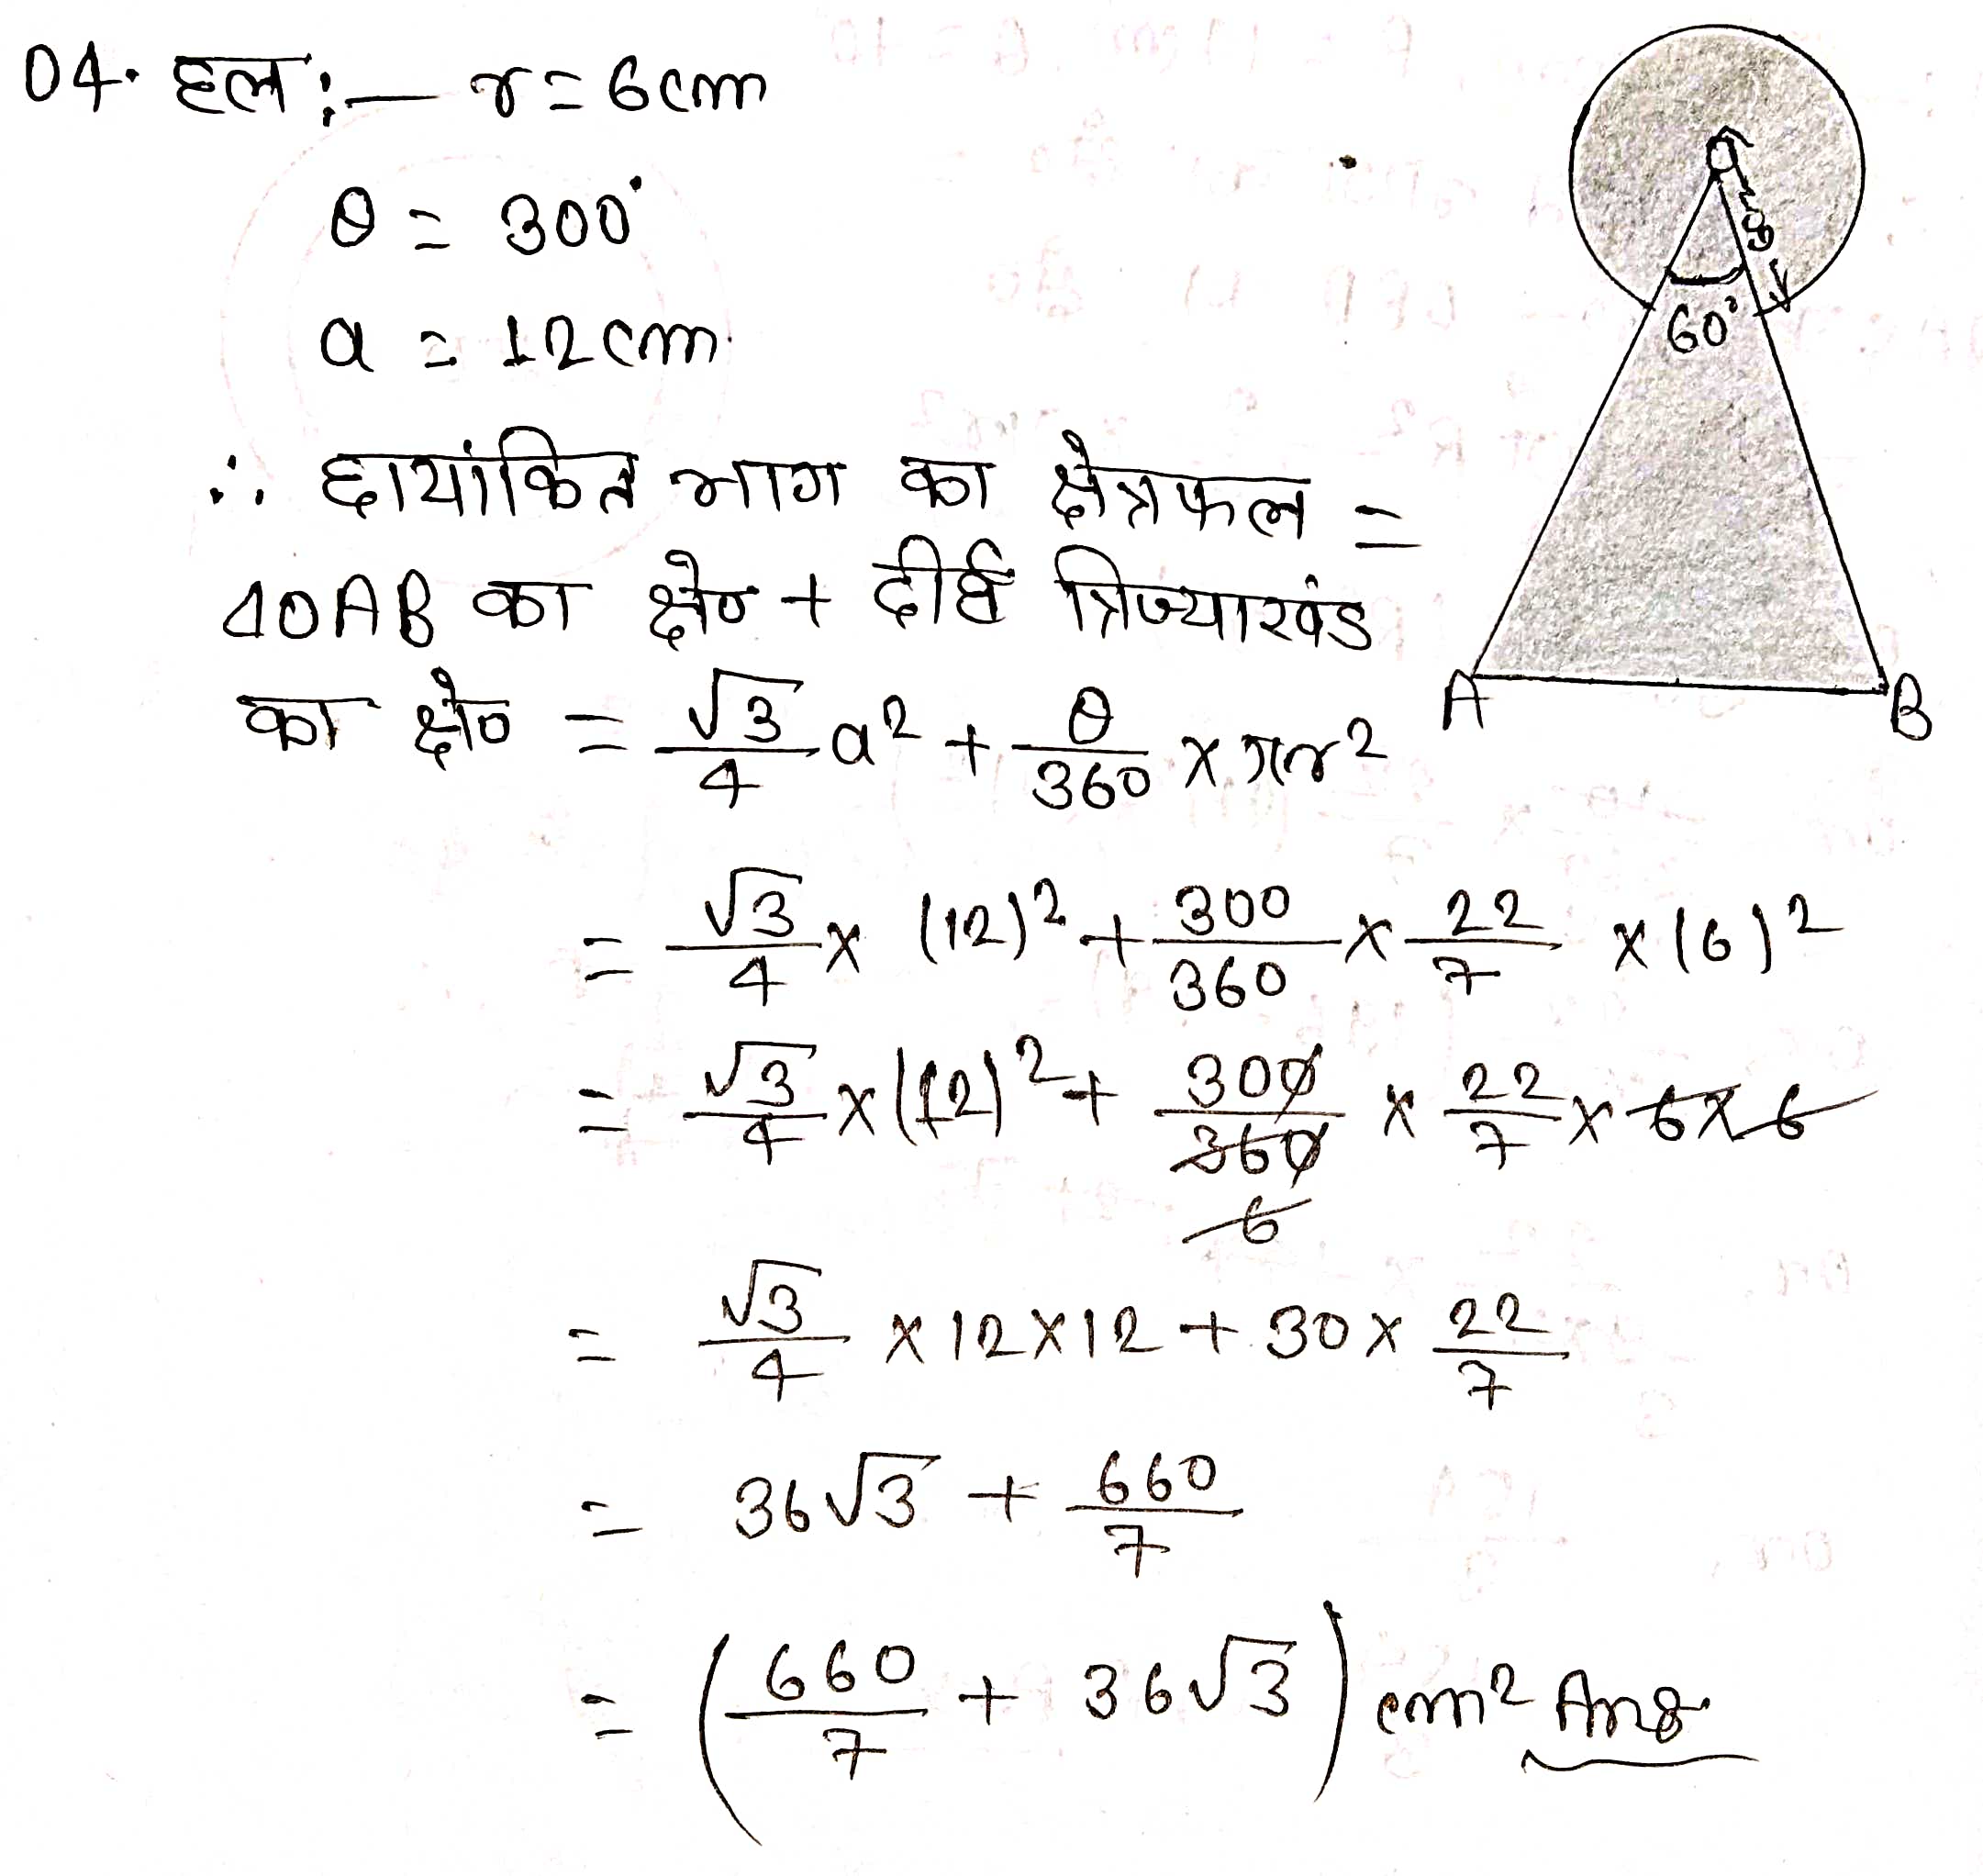 04. हल :— r = 6cm
θ = 300°
a = 12cm
∴ छायांकित भाग का क्षेत्रफल =
ΔOAB का क्षे० + दीर्घ त्रिज्याखंड
का क्षे० = √3/4 a² + θ/360 × πr²
= √3/4 × (12)² + 300/360 × 22/7 × (6)²
= √3/4 × (12)² + 300/360 × 22/7 × 6 × 6
6
= √3/4 × 12 × 12 + 30 × 22/7
= 36√3 + 660/7
= (660/7 + 36√3) cm² Ans
O
60°
A
B